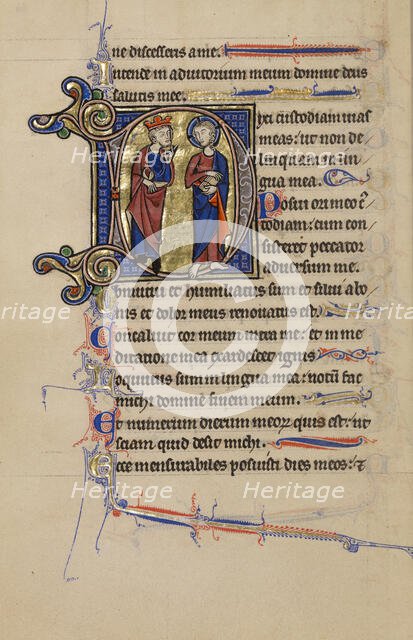 ne discesseris a me.
Intende in adiutorium meum domine deus
salutis mee.
Dixi custodiam uias
meas: ut non de
linquam in lin
gua mea.
Posui ori meo c
todiam: cum con
sisteret peccator
aduersum me.
Obmutui et humiliatus sum et silui a bo
nis et dolor meus renouatus est.
Concaluit cor meum intra me: et in me
ditatione mea exardescet ignis.
Locutus sum in lingua mea: notum fac
michi domine finem meum.
Et numerum dierum meorum quis est: ut
sciam quid desit michi.
Ecce mensurabiles posuisti dies meos: et
Heritage
Heritage
Heritage
Heritage
Heritage
Heritage
Heritage
Heritage